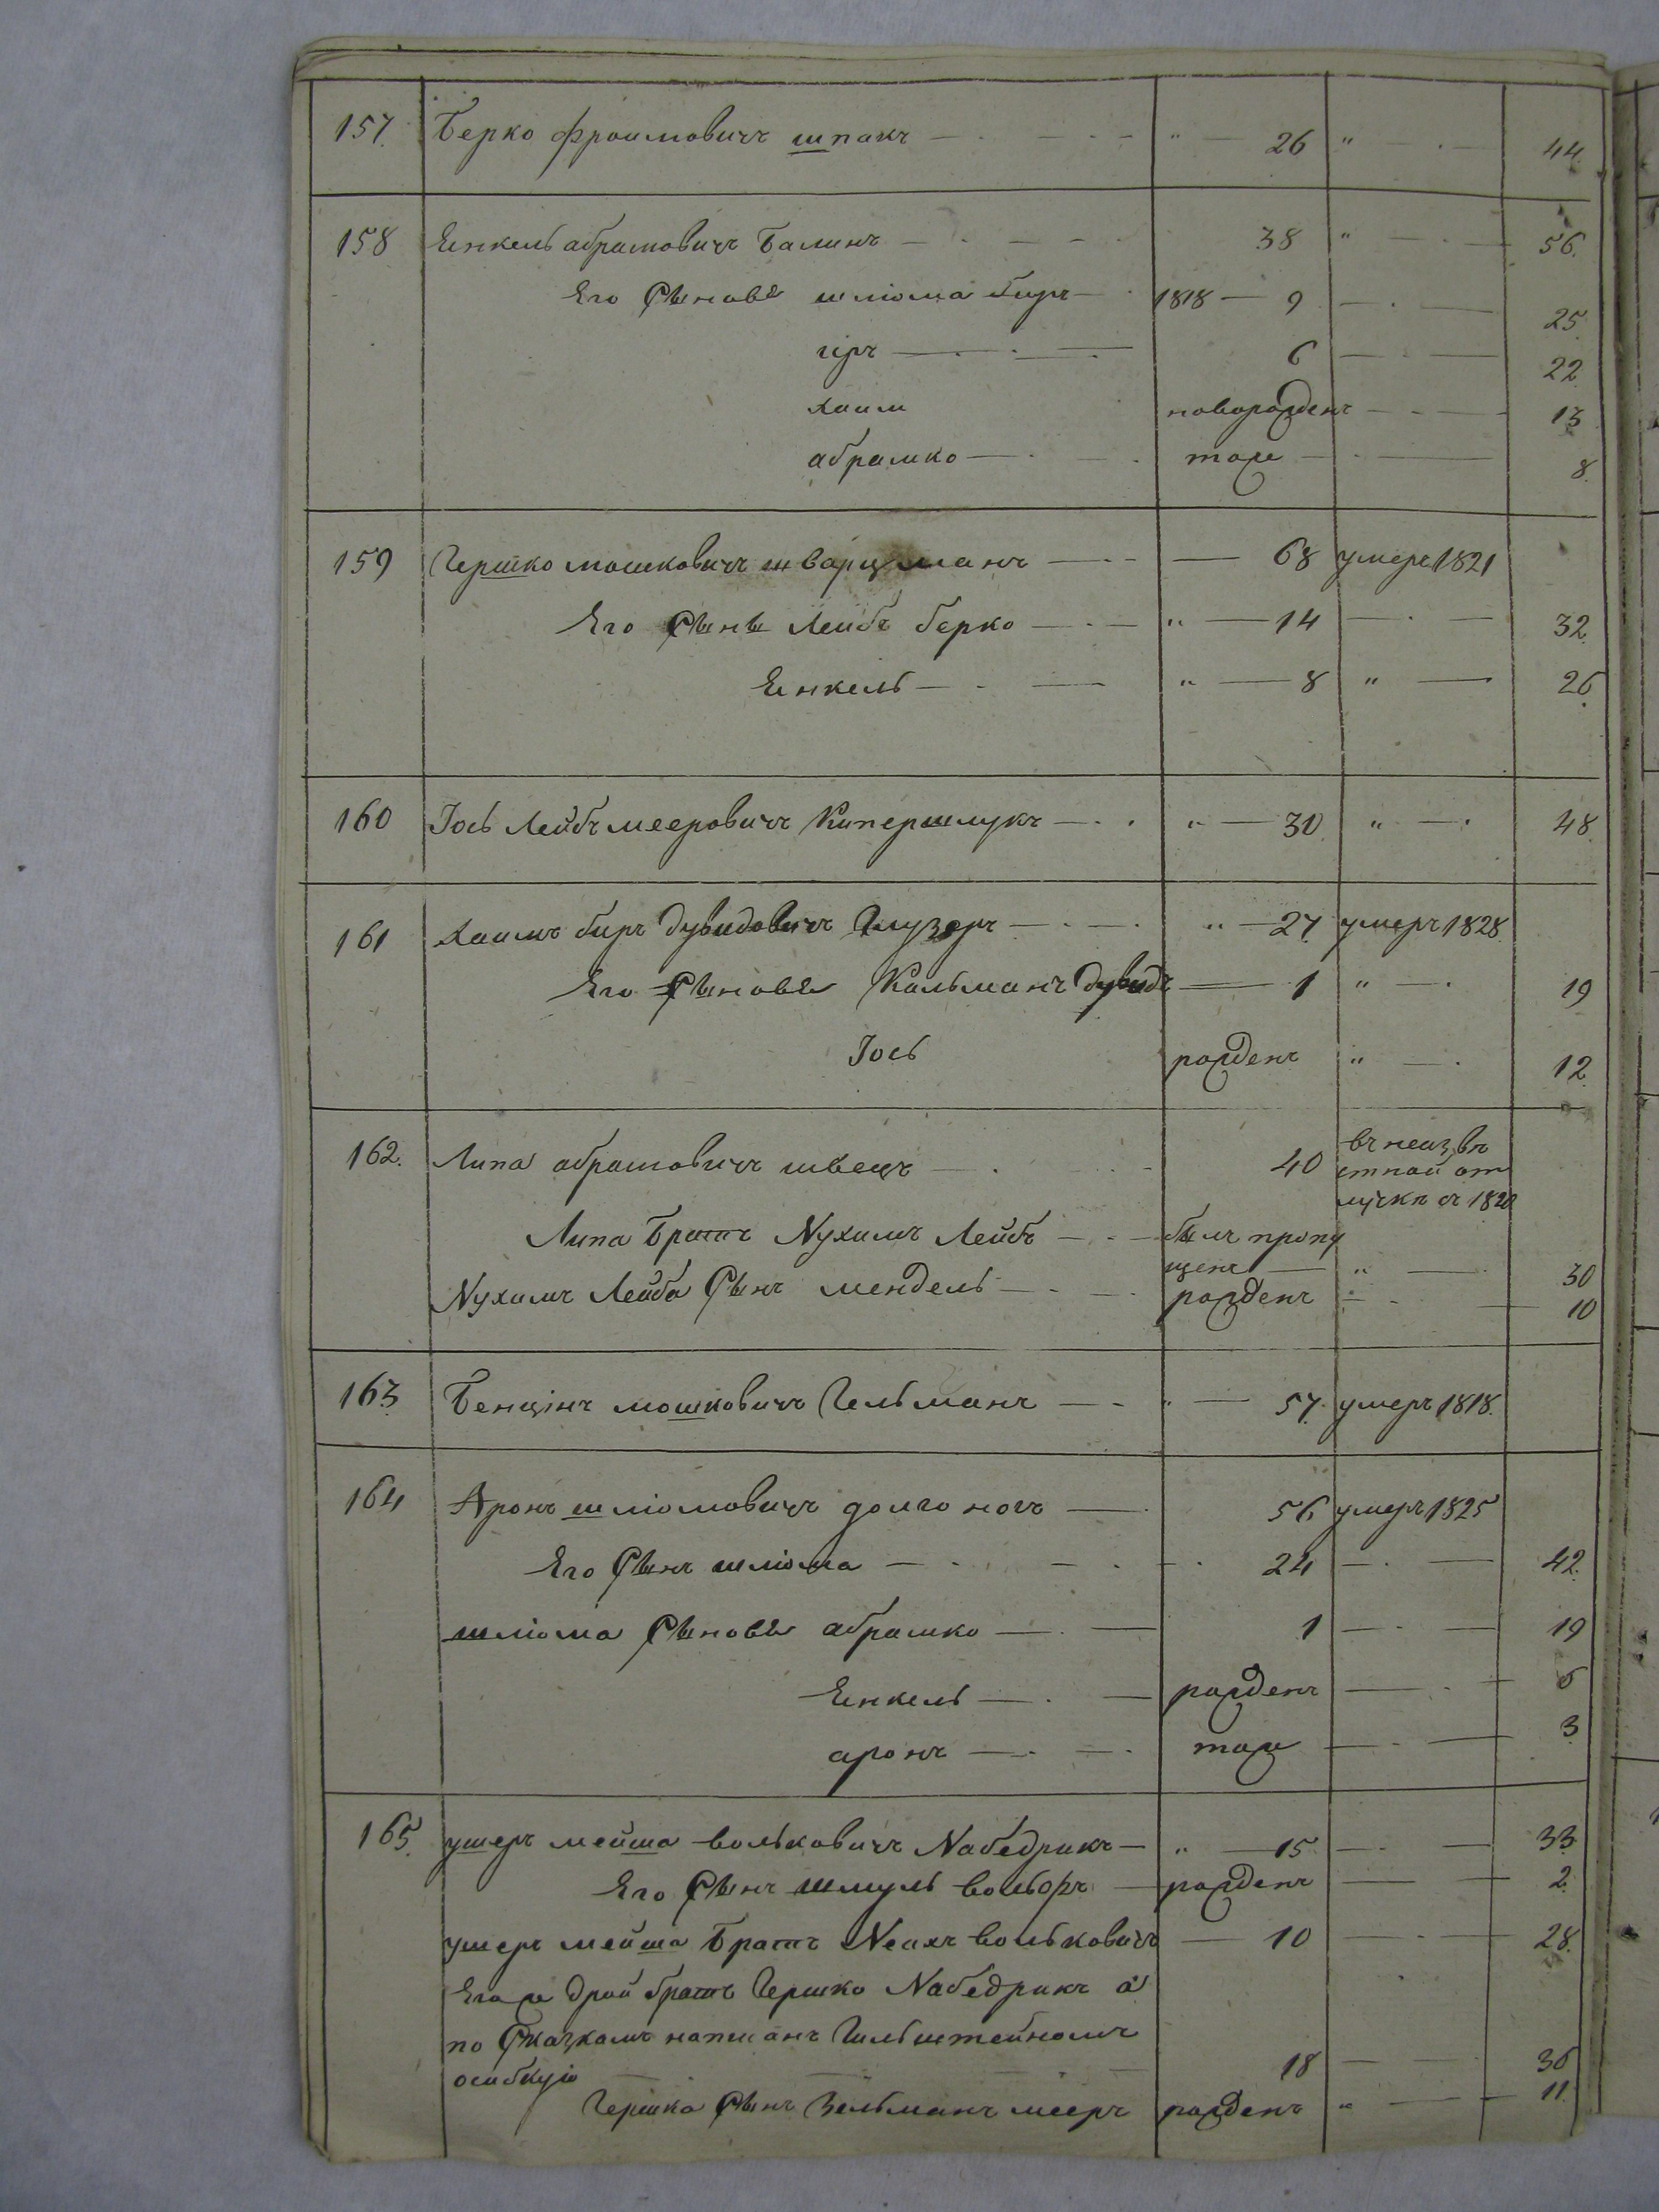 157. Берко Фроимовичъ шпакъ " 26 " 44.
158 Енкель абрамовичъ Балинъ 38 " 56.
Его Сыновя шліома биръ 1818 9 25.
гиръ 6 22
хаим новорожденъ 13
абрамко тоже 8.
159 Гершко мошковичъ шварцманъ 68 умеръ 1821
Его Сыны Лейбъ берко " 14 32.
Енкель " 8 " 26.
160 Іось Лейбъ мееровичъ Купершлукъ " 30. " 48.
161 хаимъ биръ дувидовичъ Глузеръ " 27. умеръ 1828.
Его Сыновя Кальманъ дувидъ 1 " 19
Іось рожденъ " 12.
162. Липа абрамовичъ швецъ 40 въ неизвѣ
стной от
лучкѣ съ 1820
Липа Братъ Нухимъ Лейбъ былъ пропу
щенъ " 30
Нухимъ Лейба Сынъ мендель рожденъ 10
163. Бенцінъ мошковичъ Гельманъ " 57. умеръ 1818.
164 Аронъ шліомовичъ долгоногъ 56 умеръ 1825
Его Сынъ шліома 24 42.
шліома Сыновя абрамко 1 19
Енкель рожденъ 6
аронъ тоже 3
165. ушеръ мейша вольковичъ Набедрикъ " 15 33.
Его Сынъ шмуль вольфъ рожденъ 2.
ушеръ мейша Братъ Неахъ вольковичъ 10 28.
Его же дрой братъ Гершко Набедрикъ а
по Сказкамъ написанъ Гильштейномъ
18 36
Гершка Сынъ Зельманъ мееръ рожденъ " 11.